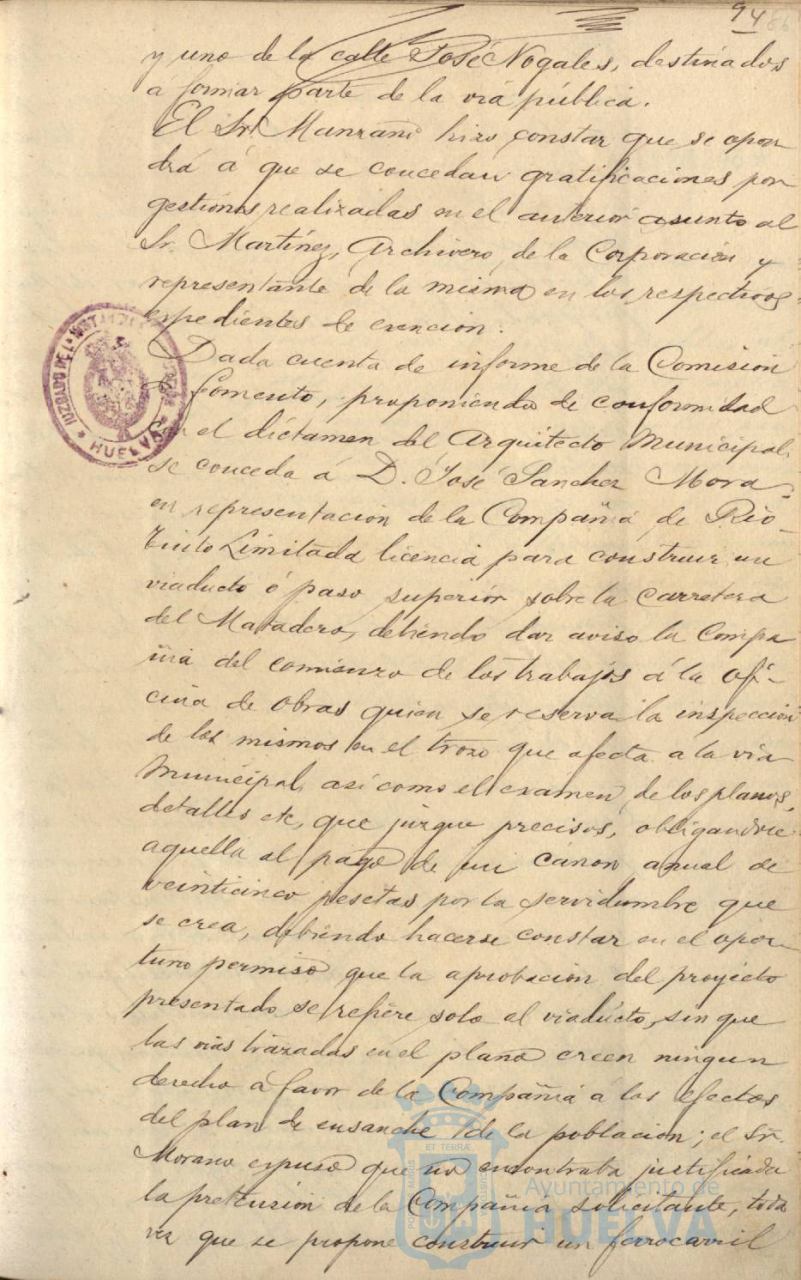 94 86
y uno de la calle José Nogales, destinados
á formar parte de la via pública.
El Sr. Manzano hizo constar que se opon
drá á que se concedan gratificaciones por
gestiones realizadas en el anterior asunto al
Sr. Martinez, Archivero de la Corporación y
representante de la misma en los respectivos
espedientes de exención.
Dada cuenta de informe de la Comisión
de Fomento, proponiendo de conformidad
el dictamen del Arquitecto Municipal,
se conceda á D. José Sanchez Mora
en representación de la Compañia de Rio-
Tinto Limitada licencia para construir un
viaducto ó paso superior sobre la carretera
del Matadero, debiendo dar aviso la Compa
ñia del comienzo de los trabajos á la ofi-
cina de obras quien se reserva la inspección
de los mismos en el trozo que afecta a la via
Municipal, asi como el examen de los planos,
detalles etc, que juzgue precisos, obligandose
aquella al pago de un cánon anual de
veinticinco pesetas por la servidumbre que
se crea, debiendo hacerse constar en el opor-
tuno permiso que la aprobación del proyecto
presentado se refiere solo al viaducto, sin que
las vias trazadas en el plano creen ningun
derecho á favor de la Compañia á los efectos
del plan de ensanche de la población; el Sr.
Morano espuso que no encontraba justificada
la pretensión de la Compañia solicitante, toda
vez que se propone construir un ferrocarril
JUZGADO DE 1ª INSTANCIA
* HUELVA *
ET TERRÆ
Ayuntamiento de
HUELVA